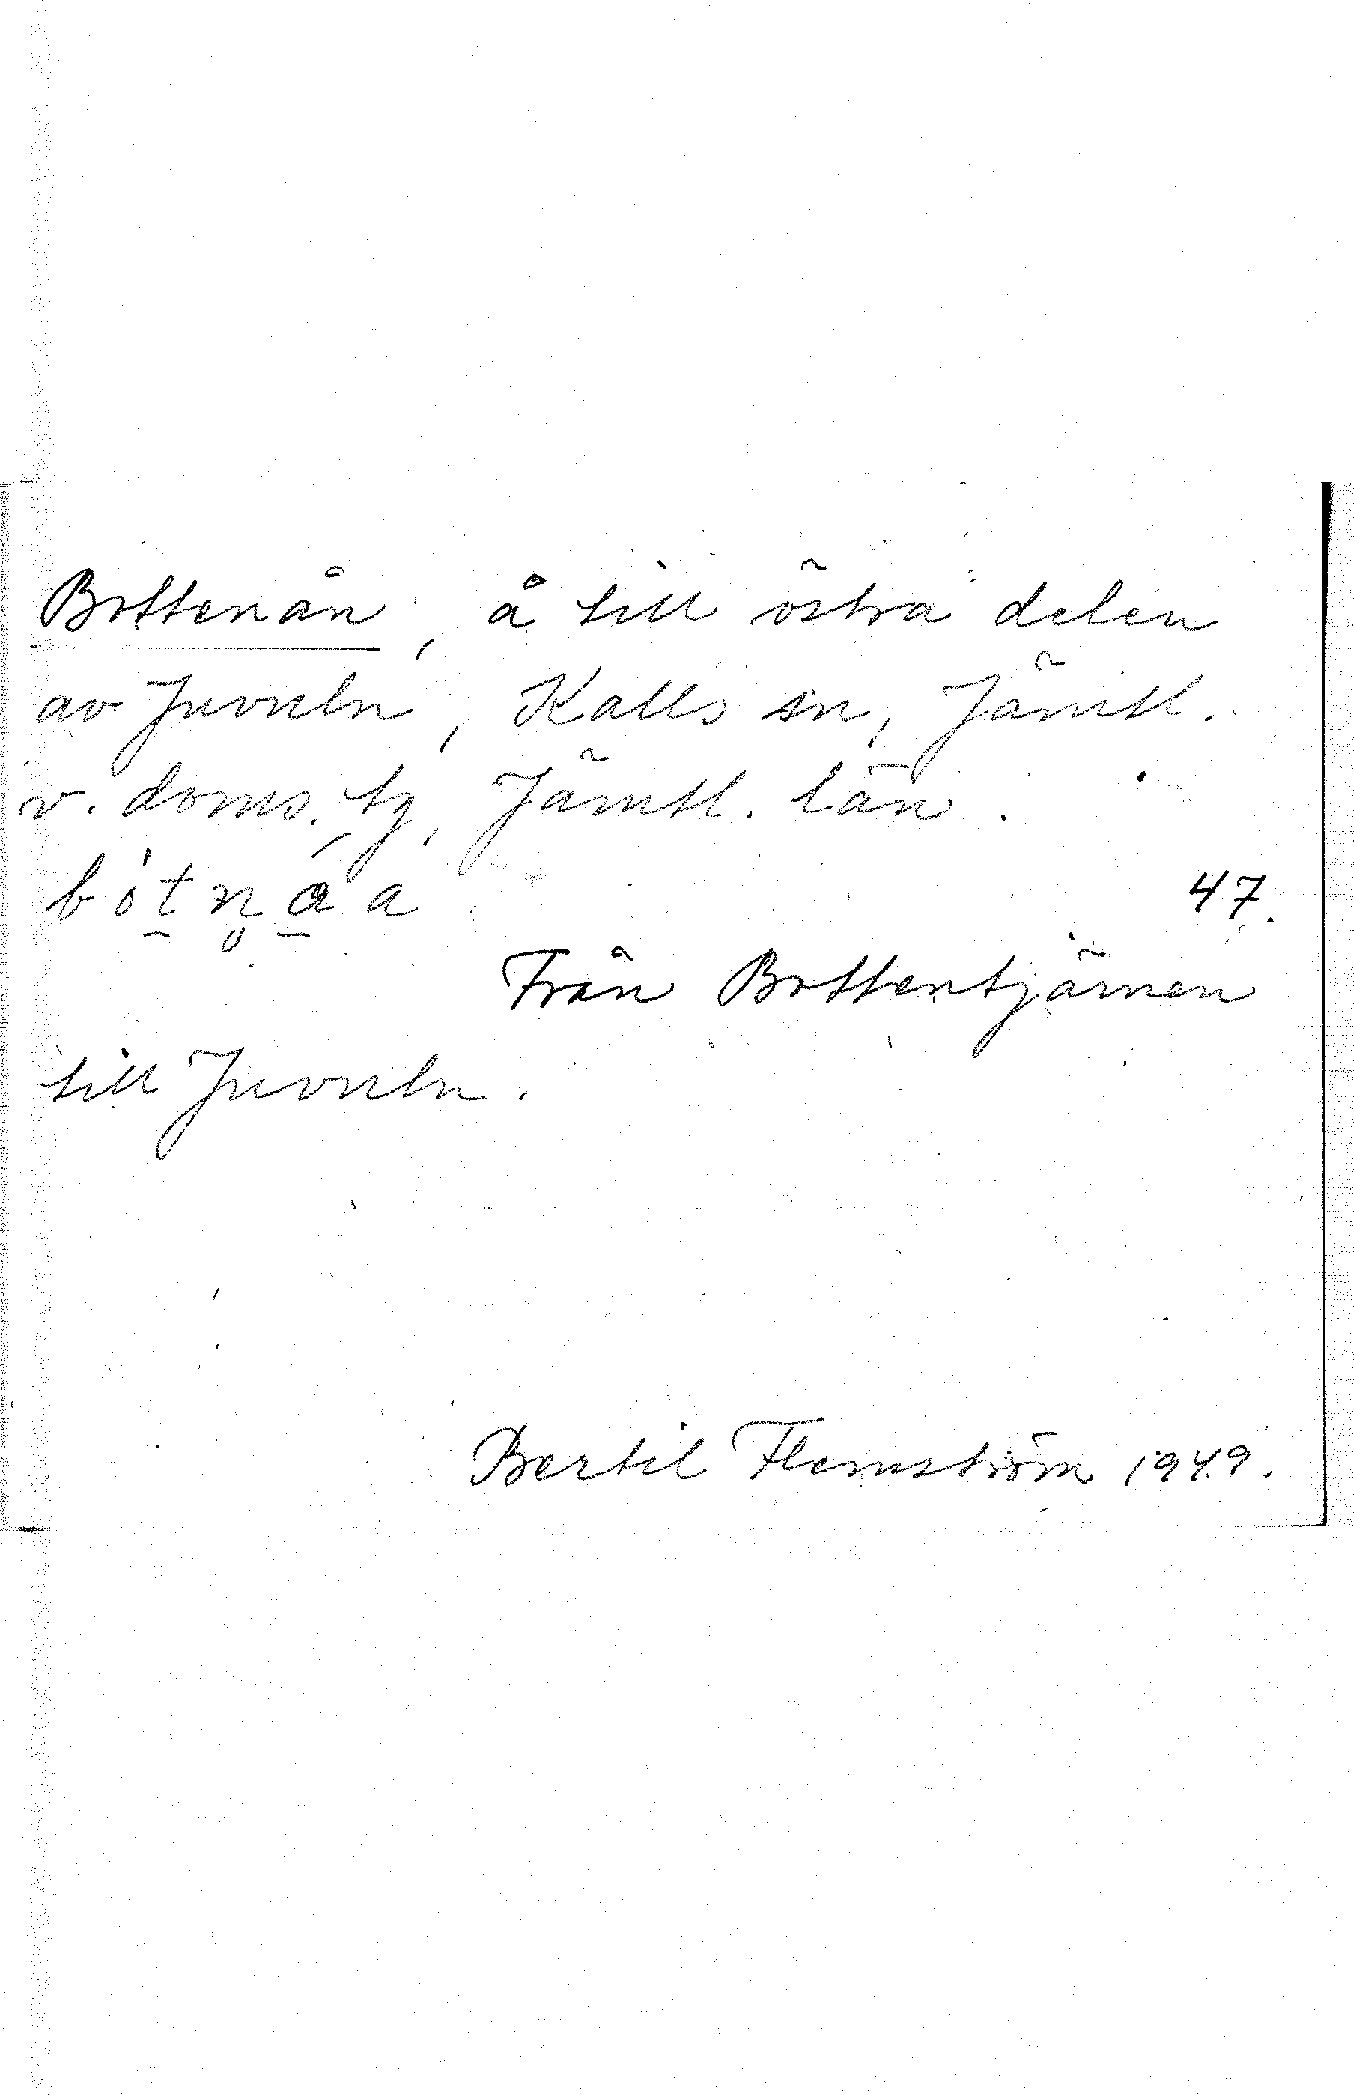 Bottenån, å till östra delen
av Juvuln, Kalls sn, Jämtl.
v. doms. tg, Jämtl. län.
47.
Från Bottentjärnen
till Juvuln.
Bertil Flemström 1949.